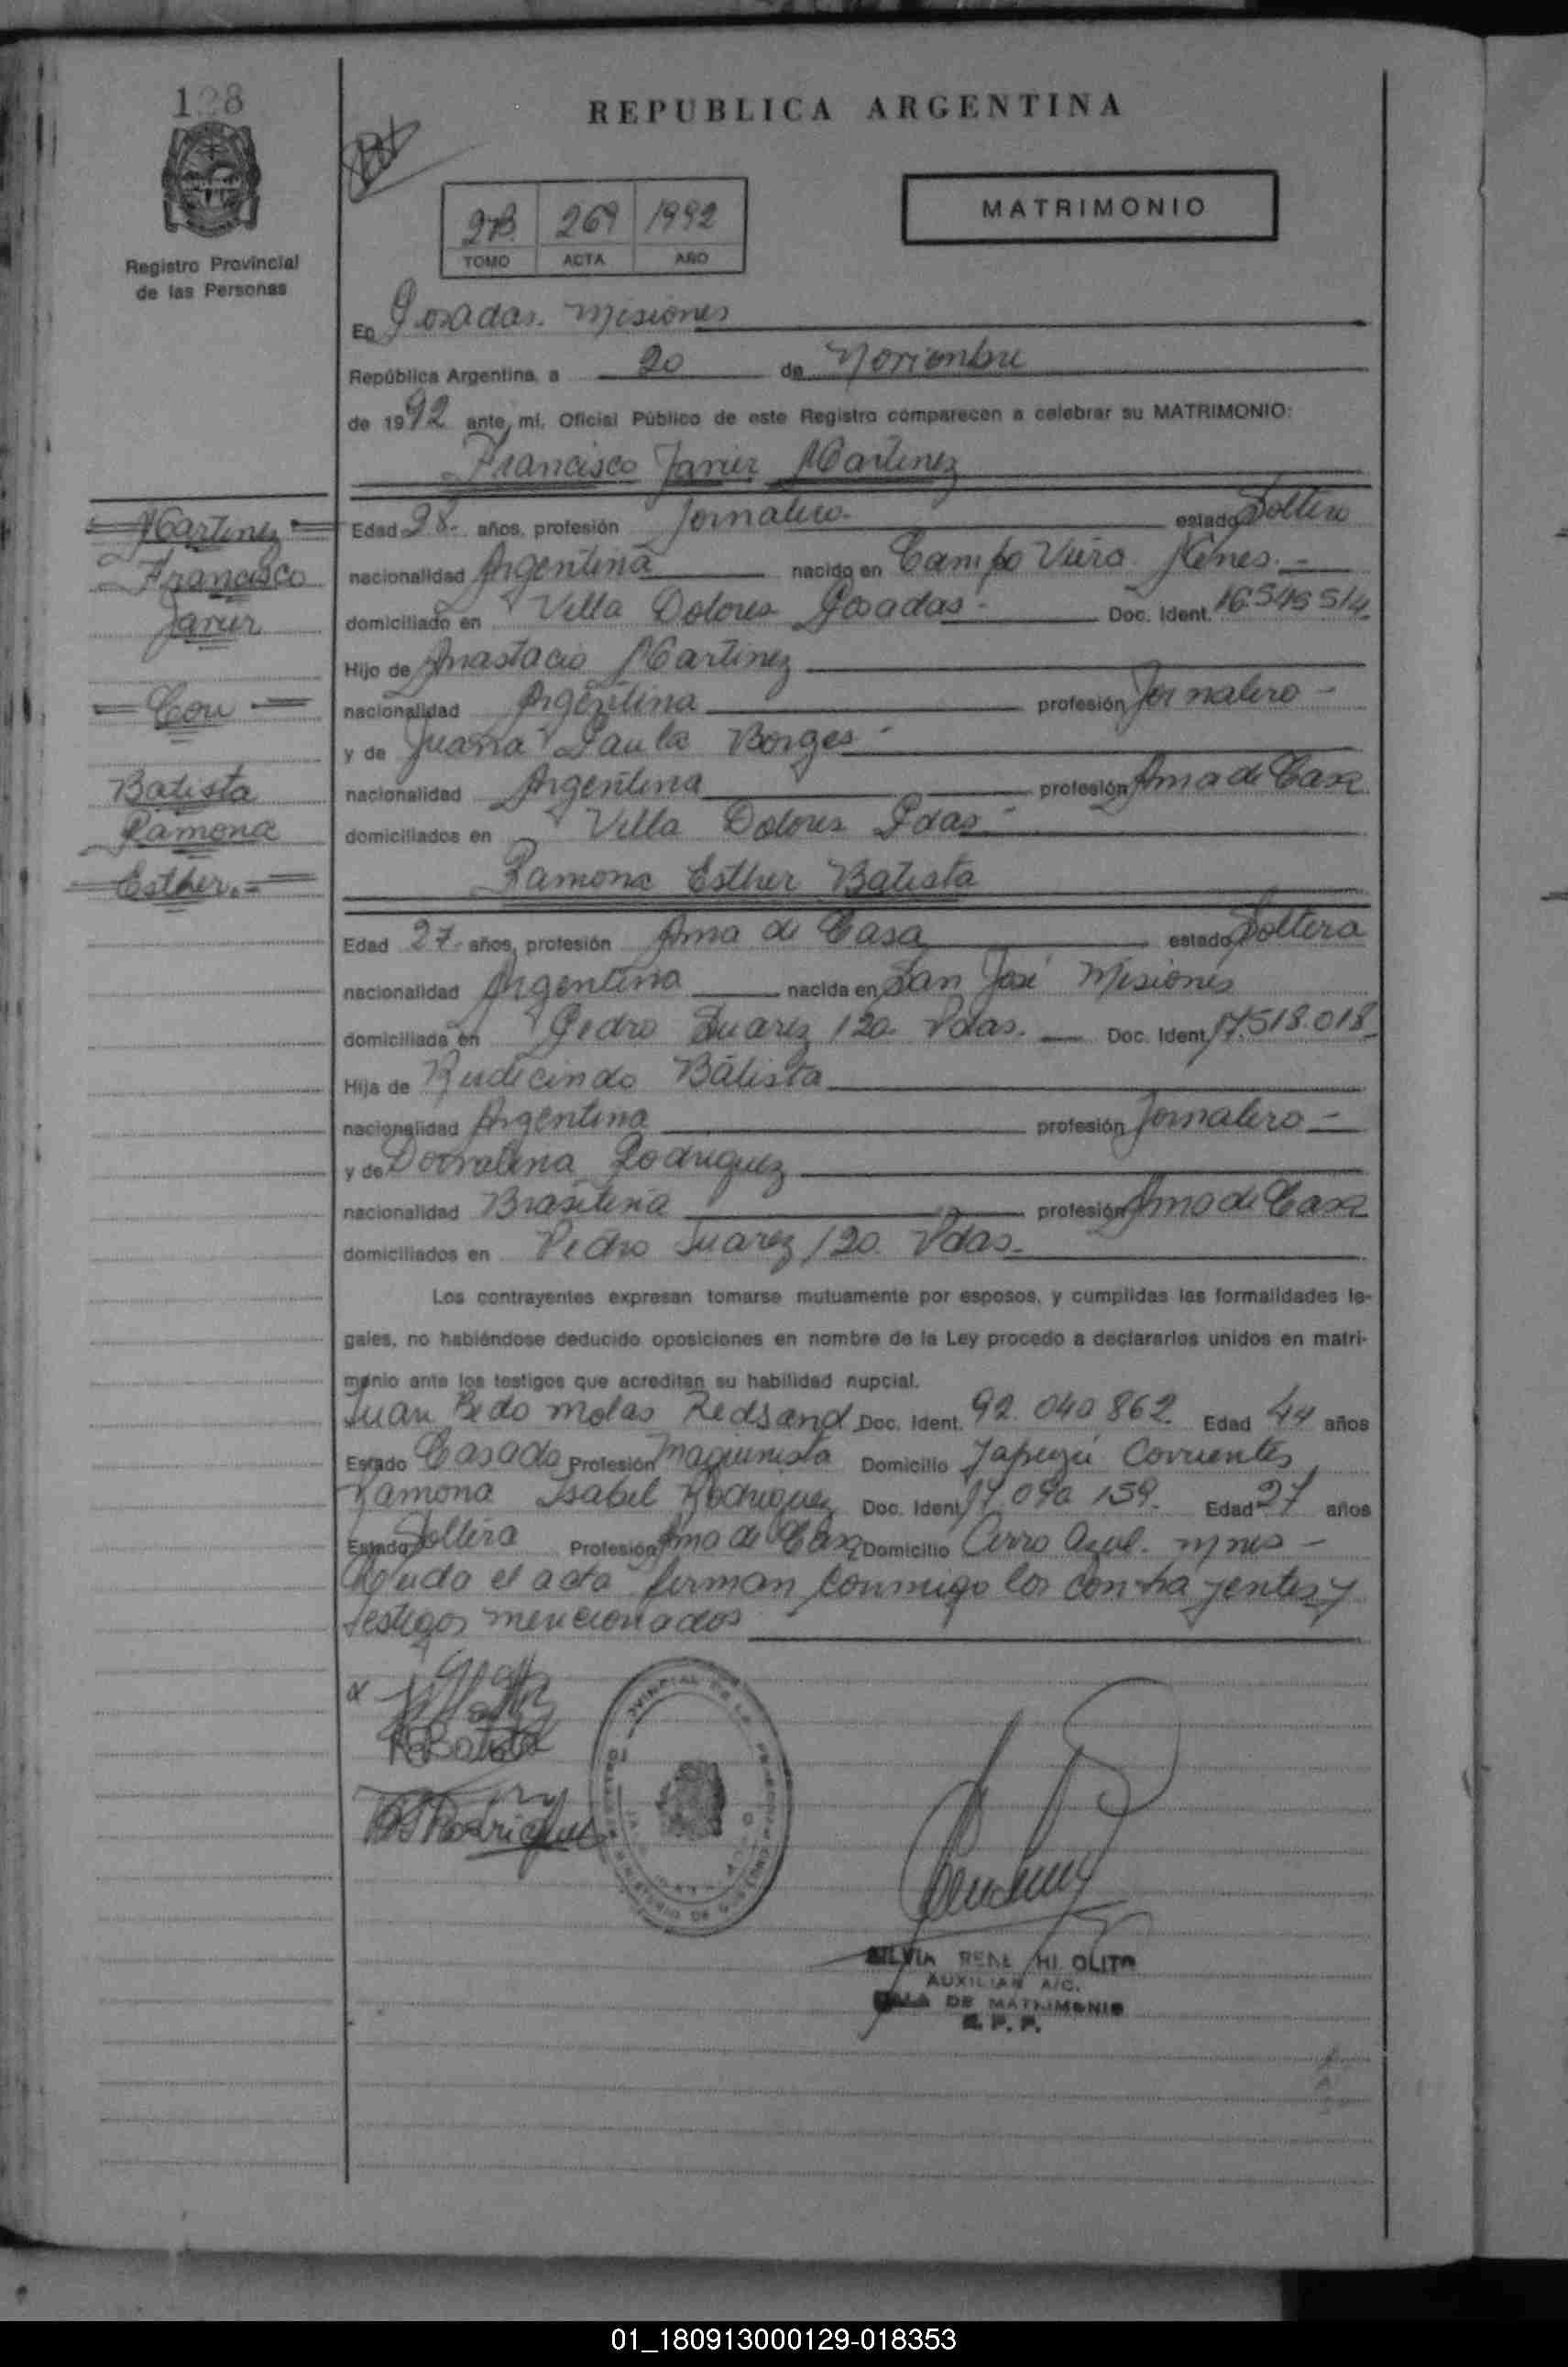 128
REPUBLICA ARGENTINA
MATRIMONIO
269 1992
TOMO ACTA AÑO
Registro Provincial
de las Personas
En Posadas. Misiones
República Argentina, a 20 de Noviembre
de 1992 ante mí, Oficial Público de este Registro comparecen a celebrar su MATRIMONIO:
Francisco Javier Martinez
Martinez
Francisco
Javier
Con
Batista
Ramona
Esther.=
Edad 28. años, profesión Jornalero. estado Soltero
nacionalidad Argentina nacido en Campo Viera
domiciliado en Villa Dolores Posadas - Doc. Ident. 16.545.514
Hijo de Anastacio Martinez
nacionalidad Argentina profesión Jornalero -
y de Juana Paula Borges -
nacionalidad Argentina profesión Ama de Casa
domiciliados en Villa Dolores Pdas -
Ramona Esther Batista
Edad 27. años, profesión Ama de Casa estado Soltera
nacionalidad Argentina nacida en San José Misiones
domiciliada en Pedro Suarez 120. Pdas. Doc. Ident. 17.518.018
Hija de Rudecindo Batista
nacionalidad Argentina profesión Jornalero -
y de Dorvalina Rodriguez
nacionalidad Brasileña profesión Ama de Casa
domiciliados en Pedro Suarez 120. Pdas.
Los contrayentes expresan tomarse mutuamente por esposos, y cumplidas las formalidades le-
gales, no habiéndose deducido oposiciones en nombre de la Ley procedo a declararlos unidos en matri-
monio ante los testigos que acreditan su habilidad nupcial.
Juan Molas Doc. Ident. 92.040.862 Edad 44 años
Estado Casado Profesión Maquinista Domicilio Corrientes
Ramona Isabel Rodriguez Doc. Ident. 17.090.159. Edad 27 años
Estado Soltera Profesión Ama de Casa Domicilio Cerro Azul. Mnes -
Leida el acta firman conmigo los contrayentes y
testigos mencionados
R Batista
Rodriguez
SILVIA
AUXILIAR A/C.
SALA DE MATRIMONIO
R. P. P.
01_180913000129-018353